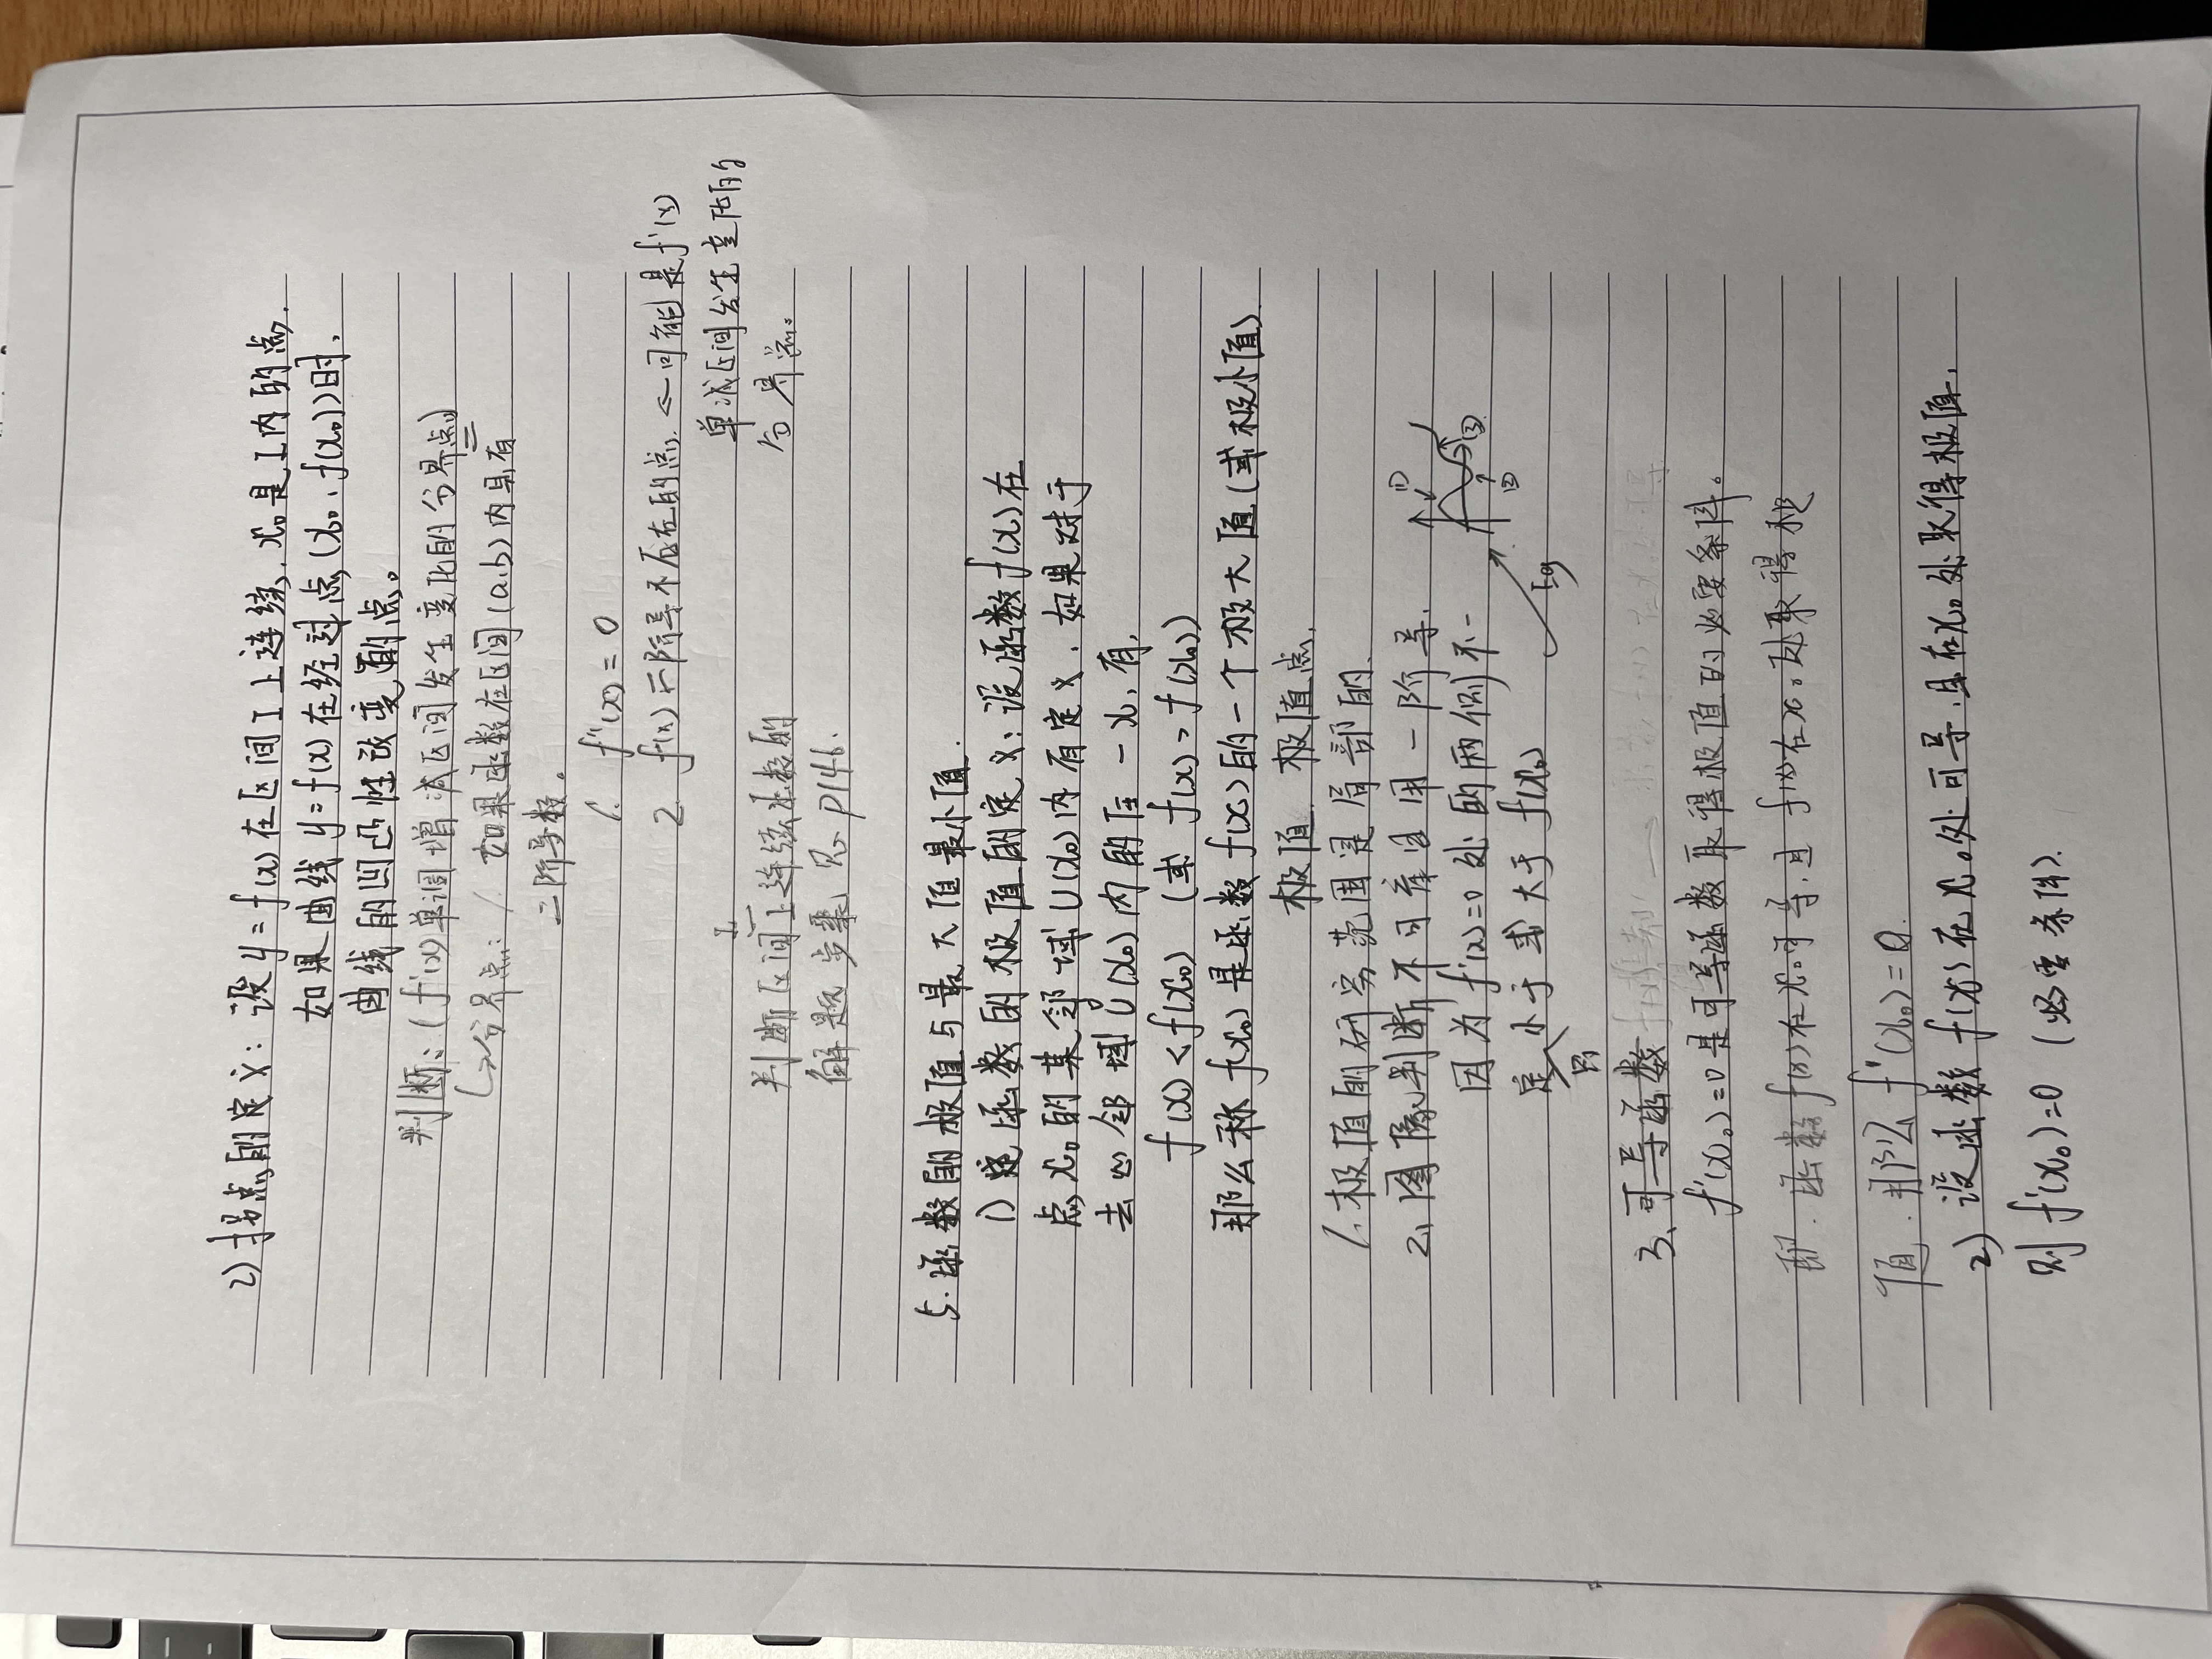 2) 拐点的定义：设 y=f(x) 在区间 I 上连续，x₀是I内的点.
如果曲线 y=f(x) 在经过点 (x₀, f(x₀)) 时，
曲线的凹凸性改变的点。
判断：( f'(x) 单调增减区间发生变化的分界点)
↳分界点： 1. 如果函数在区间 (a,b) 内具有
二阶导数。
1. f''(x) = 0
2. f(x) 二阶导不存在的点 ← 可能是 f'(x)
单减区间发生变化的
分界点。
判断区间I上连续函数的
解题步骤 见 P146.
5. 函数的极值与最大值最小值.
1) 函数的极值的定义：设函数 f(x) 在
点 x₀ 的某邻域 U(x₀) 内有定义. 如果对于
去心邻域 U(x₀) 内的任一 x, 有,
f(x) < f(x₀) (或 f(x) > f(x₀))
那么称 f(x₀) 是函数 f(x) 的一个极大值 (或极小值)
极值. 极值点.
1. 极值的研究范围是局部的.
2. 图像判断不可盲目用一阶导.
① ② ③
因为 f'(x)=0 处的两侧不一
定同小于或大于 f(x₀)
Eg
3. 可导函数
f'(x₀)=0 是可导函数取得极值的必要条件。
即. 函数 f(x) 在 x₀ 可导, 且 f(x) 在 x₀ 处取得极
值. 那么 f'(x₀) = 0.
2) 设函数 f(x) 在 x₀ 处可导, 且在 x₀ 处取得极值,
则 f'(x₀)=0 (必要条件).